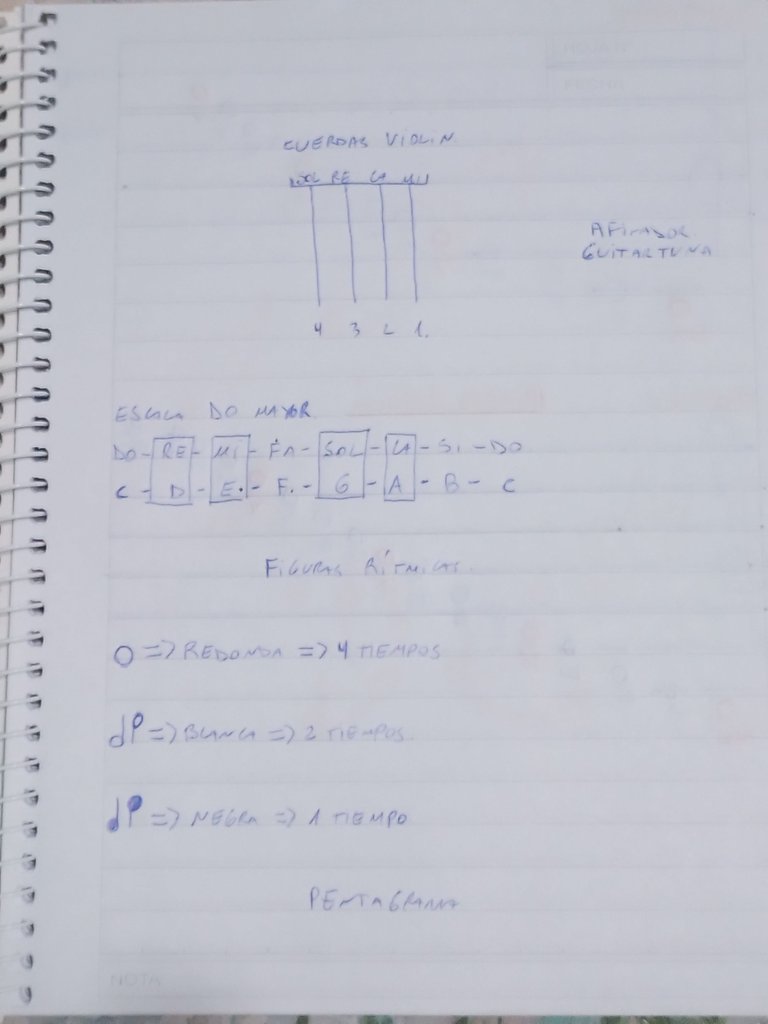 CUERDAS VIOLIN.
SOL RE LA MI
AFINADOR
GUITARTUNA
4 3 2 1.
ESCALA DO MAYOR
DO - RE - MI - FA - SOL - LA - SI - DO
C - D - E. - F. - G - A - B - C
FIGURAS RÍTMICAS.
O => REDONDA => 4 TIEMPOS
=> BLANCA => 2 TIEMPOS.
=> NEGRA => 1 TIEMPO
PENTAGRAMA
NOTA